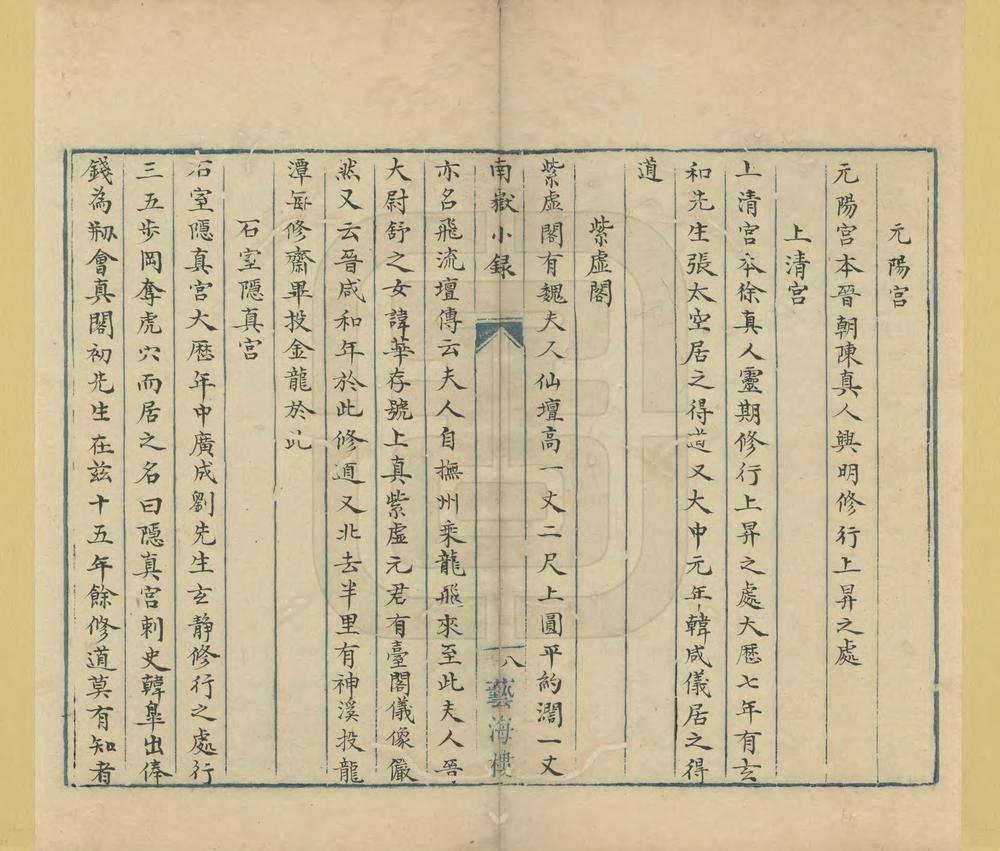 元陽宮
元陽宮本晉朝陳真人興明修行上昇之處
上清宮
上清宮本徐真人靈期修行上昇之處大厯七年有玄
和先生張太空居之得道又大中元年韓咸儀居之得
道
紫虛閣
紫虛閣有魏夫人仙壇高一丈二尺上圓平約濶一丈
南嶽小錄
八
藝海樓
亦名飛流壇傳云夫人自撫州乘龍飛來至此夫人晉
大尉舒之女諱華存號上真紫虛元君有臺閣儀像儼
然又云晉咸和年於此修道又北去半里有神溪投龍
潭每修齋畢投金龍於此
石室隱真宮
石室隱真宮大厯年中廣成劉先生玄靜修行之處行
三五步岡奪虎穴而居之名曰隱真宮刺史韓臯出俸
錢為剏會真閣初先生在茲十五年餘修道莫有知者